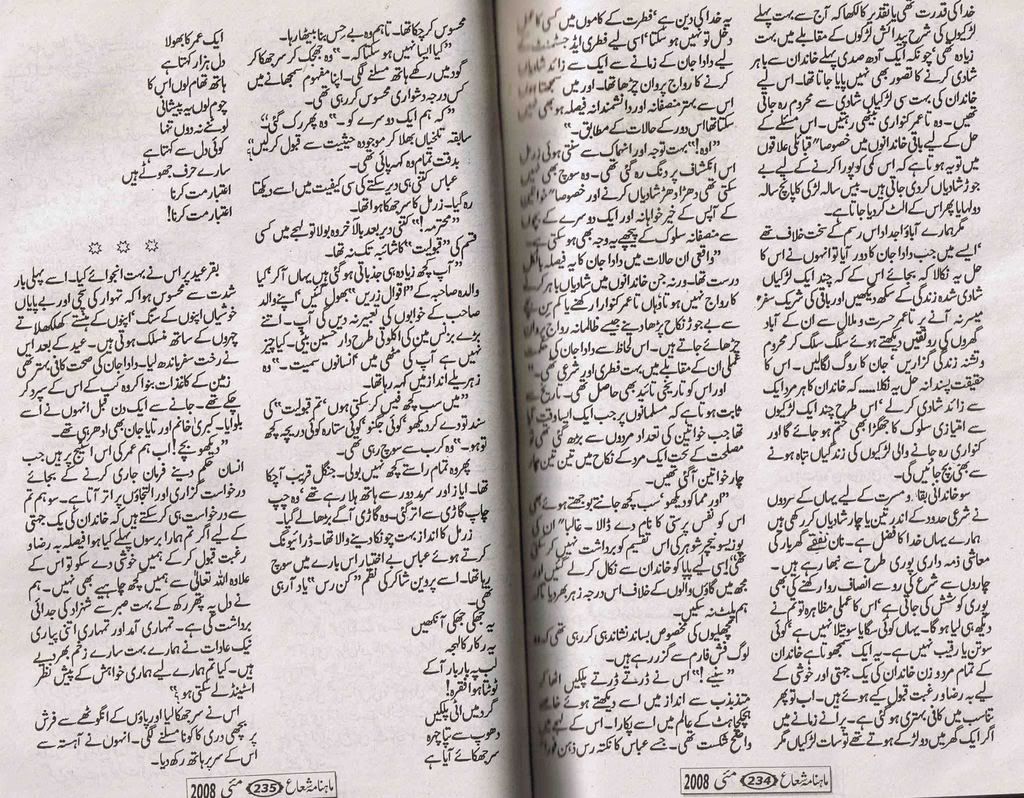 خدا کی قدرت تھی یا تقدیر کا لکھا کہ آج سے بہت پہلے
لڑکیوں کی شرح پیدائش لڑکوں کے مقابلے میں بہت
زیادہ تھی، چونکہ ایک آدھ صدی پہلے خاندان سے باہر
شادی کرنے کا تصور بھی نہیں پایا جاتا تھا۔ اس لیے
خاندان کی بہت سی لڑکیاں شادی سے محروم رہ جاتی
تھیں۔ وہ تا عمر کنواری بیٹھی رہتیں۔ اس مسئلے کے
حل کے لیے باقی خاندانوں میں خصوصا" قبائلی علاقوں
میں تو یہ ہوتا ہے کہ اس کمی کو پورا کرنے کے لیے بے
جوڑ شادیاں کر دی جاتی ہیں۔ بیس سالہ لڑکی کا پانچ سالہ
دولہا یا پھر اس کے الٹ کر دیا جاتا ہے۔
مگر ہمارے آباؤ اجداد اس رسم کے سخت خلاف تھے
'ایسے میں جب دادا جان کا دور آیا تو انہوں نے اس کا
حل یہ نکالا کہ بجائے اس کے کہ چند ایک لڑکیاں
شادی شدہ زندگی کے سکھ دیکھیں اور باقی کی شریک سفر
میسر نہ آنے پر تا عمر حسرت و ملال سے ان کے آباد
گھروں کی رونقیں دیکھتے ہوئے سلگ سلگ کر محروم
و تشنہ زندگی گزاریں 'جان کا روگ لگالیں۔ اس کا
حقیقت پسندانہ حل یہ نکالا.... کہ خاندان کا ہر مرد ایک
سے زائد شادی کرلے 'اس طرح چند ایک لڑکیوں
سے امتیازی سلوک کا جھگڑا بھی ختم ہو جائے گا اور
کنواری رہ جانے والی لڑکیوں کی زندگیاں تباہ ہونے
سے بھی بچ جائیں گی۔
سو خاندانی بقا و مسرت کے لیے یہاں کے مردوں
نے شرعی حدود کے اندر تین یا چار شادیاں کر رکھی ہیں
ہمارے یہاں خدا کا فضل ہے۔ نان نفقے 'گھر بار کی
معاشی ذمہ داری پوری طرح سے نبھا رہے ہیں۔
چاروں سے شرع کی رو سے انصاف روا رکھنے کی بھی
پوری کوشش کی جاتی ہے 'اس کا عملی مظاہرہ تو تم نے
دیکھ ہی لیا ہو گا۔ یہاں کوئی سگا یا سوتیلا نہیں ہے 'کوئی
سوتن یا رقیب نہیں ہے۔ یہ ایک سمجھوتا ہے خاندان
کے تمام مرد و زن خاندان کی یک جہتی اور خوشی کے
لیے بہ رضا و رغبت قبول کیے ہوئے ہیں۔ اب تو پھر
تناسب میں کافی بہتری ہو گئی ہے۔ پرانے زمانے میں
اگر ایک گھر میں دو لڑکے ہوتے تھے تو سات لڑکیاں مگر
یہ خدا کی دین ہے 'فطرت کے کاموں میں کسی کا عمل
دخل تو نہیں ہو سکتا 'اسی لیے فطری ایڈجسٹمنٹ کے
لیے دادا جان کے زمانے سے ایک سے زائد شادیاں
کرنے کا رواج پروان چڑھا تھا۔ اور میں سمجھتا ہوں
اس سے بہتر منصفانہ اور دانشمندانہ فیصلہ ہو بھی نہیں
سکتا تھا اس دور کے حالات کے مطابق۔"
"اوہ!" بہت توجہ اور انہماک سے سنتی ہوئی زرمل
اس انکشاف پر دنگ رہ گئی تھی۔ وہ سوچ بھی نہیں
سکتی تھی دھڑا دھڑ شادیاں کرنے اور خصوصا" خواتین
کے آپس کے خیر خواہانہ اور ایک دوسرے کے بچوں
سے منصفانہ سلوک کے پیچھے یہ وجہ بھی ہو سکتی ہے۔
"واقعی ان حالات میں دادا جان کا یہ فیصلہ بالکل
درست تھا۔ ورنہ جن خاندانوں میں شادیاں باہر کرنے
کا رواج نہیں ہوتا وہاں تا عمر کنوارا رکھنے یا کم سن بچے
سے بے جوڑ نکاح پڑھا دینے جیسے ظالمانہ رواج پروان
چڑھائے جاتے ہیں۔ اس لحاظ سے دادا جان کی حکمت
عملی ان کے مقابلے میں بہت فطری اور شرعی تھی۔"
اور اس کو تاریخی تائید بھی حاصل تھی۔ تاریخ سے
ثابت ہوتا ہے کہ مسلمانوں پر جب ایک ایسا وقت آیا
تھا جب خواتین کی تعداد مردوں سے بڑھ گئی تھی تو
مصلحت کے تحت ایک مرد کے نکاح میں تین تین چار
چار خواتین آ گئی تھیں۔
"اور مما کو دیکھو 'سب کچھ جانتے بوجھتے ہوئے بھی
اس کو نفس پرستی کا نام دے ڈالا۔ غالبا" ان کی
پوزیسو نیچر شوہر کی اس تقسیم کو برداشت نہیں کر سکی
تھی 'اسی لیے پاپا کو خاندان سے نکال کر لے گئیں اور
مجھ میں گاؤں والوں کے خلاف اس درجہ زہر بھر دیا تاکہ
ہم پلٹ نہ سکیں۔
مچھلیوں کی مخصوص بساند نشاندہی کر رہی تھی کہ وہ
لوگ فش فارم سے گزر رہے ہیں۔
"سنیے!" اس نے ڈرتے ڈرتے پلکیں اٹھا کر
متذبذب سے انداز میں اسے دیکھتے ہوئے خاصے
ہچکچاہٹ کے عالم میں اسے پکارا۔ اس کے لہجے میں
واضح شکست تھی۔ جسے عباس کا نکتہ رس ذہن فورا"
ماہنامہ شعاع 234 مئی 2008
محسوس کر چکا تھا۔ تاہم وہ بے حس بنا بیٹھا رہا۔
"کیا ایسا نہیں ہو سکتا کہ۔" وہ جھجک کر سر جھکا کر
گود میں رکھے ہاتھ مسلنے لگی۔ اپنا مفہوم سمجھانے میں
کس درجہ دشواری محسوس کر رہی تھی۔
"کہ ہم ایک دوسرے کو۔" وہ پھر رک گئی۔
سابقہ تلخیاں بھلا کر موجودہ حیثیت سے قبول کر لیں؟"
بدقت تمام وہ کہہ پائی تھی۔
عباس کتنی ہی دیر سکتے کی سی کیفیت میں اسے دیکھتا
رہ گیا۔ زرمل کا سر جھکا ہوا تھا۔
"محترمہ!" کتنی دیر بعد بالآخر وہ بولا تو لہجے میں کسی
قسم کی "قبولیت" کا شائبہ تک نہ تھا۔
"آپ کچھ زیادہ ہی جذباتی ہو گئی ہیں یہاں آ کر 'کیا
والدہ صاحبہ کے "اقوال زریں" بھول گئیں 'اپنے والد
صاحب کے خوابوں کی تعبیر نہ دیں گی آپ۔ اتنے
بڑے بزنس مین کی اکلوتی طرح دار حسین بیٹی۔ کیا چیز
نہیں ہے آپ کی مٹھی میں 'انسانوں سمیت۔" وہ
زہریلے انداز میں کہہ رہا تھا۔
"میں سب کچھ فیس کر سکتی ہوں 'تم قبولیت" کی
سند تو دے کر دیکھو 'کوئی جگنو' کوئی ستارہ کوئی دریچہ کچھ
تو ہو۔" وہ کرب سے سوچ رہی تھی۔
پھر وہ تمام راستے کچھ نہیں بولی۔ جنگل قریب آ چکا
تھا۔ ایاز اور سرمد دور سے ہاتھ ہلا رہے تھے 'وہ چپ
چاپ گاڑی سے اتر گئی۔ وہ گاڑی آگے بڑھالے گیا۔
زرمل کا انداز بہت چونکا دینے والا تھا۔ ڈرائیونگ
کرتے ہوئے عباس بے اختیار اس بارے میں سوچ
رہا تھا۔ اسے پروین شاکر کی نظم "کن رس" یاد آ رہی
تھی۔
یہ جھکی جھکی آنکھیں
یہ رکا رکا لہجہ
لب پہ بار بار آ کے
ٹوٹتا ہوا فقرہ!
گرد میں اٹی پلکیں
دھوپ سے تپا چہرہ
سر جھکائے آیا ہے
ایک عمر کا بھولا
دل ہزار کہتا ہے
ہاتھ تھام لوں اس کا
چوم لوں یہ پیشانی
لوٹنے نہ دوں تنہا
کوئی دل سے کہتا ہے
سارے حرف جھوٹے ہیں
اعتبار مت کرنا
اعتبار مت کرنا!
☼ ☼ ☼
بقر عید پر اس نے بہت انجوائے کیا۔ اسے پہلی بار
شدت سے محسوس ہوا کہ تہوار کی سچی اور بے پایاں
خوشیاں اپنوں کے سنگ 'اپنوں کے ہنستے کھلکھلاتے
چہروں کے ساتھ منسلک ہوتی ہیں۔ عید کے بعد اس
نے رخت سفر باندھ لیا۔ دادا جان کی صحت کافی بہتر تھی
زمین کے کاغذات بنوا کر وہ کب کے اس کے سپرد کر
چکے تھے۔ جانے سے ایک دن قبل انہوں نے اسے
بلوایا۔ کبریٰ خانم اور تایا جان بھی ادھر ہی تھے۔
"دیکھو بچے! اب ہم عمر کی اس اسٹیج پر ہیں جب
انسان حکم دینے فرمان جاری کرنے کے بجائے
درخواست گزاری اور التجاؤں پر اتر آتا ہے۔ سو ہم تم
سے درخواست ہی کر سکتے ہیں کہ خاندان کی یک جہتی
کے لیے اگر تم ہمارا برسوں پہلے کیا ہوا فیصلہ بہ رضا و
رغبت قبول کر کے ہمیں خوشی دے سکو تو اس کے
علاوہ اللہ تعالیٰ سے ہمیں کچھ چاہیے بھی نہیں۔ ہم
نے دل پہ پتھر رکھ کے بہت صبر سے شہزاد کی جدائی
برداشت کی ہے۔ تمہاری آمد اور تمہاری اتنی پیاری
نیک عادات نے ہمارے بہت سارے زخم بھر دیے
ہیں۔ کیا تم ہمارے لیے ہماری خواہش کے پیش نظر
اسٹینڈ لے سکتی ہو؟"
اس نے سر جھکا لیا اور پاؤں کے انگوٹھے سے فرش
پر بچھی دری کا کونا مسلنے لگی۔ انہوں نے آہستہ سے
اس کے سر پر ہاتھ رکھ دیا۔
ماہنامہ شعاع 235 مئی 2008